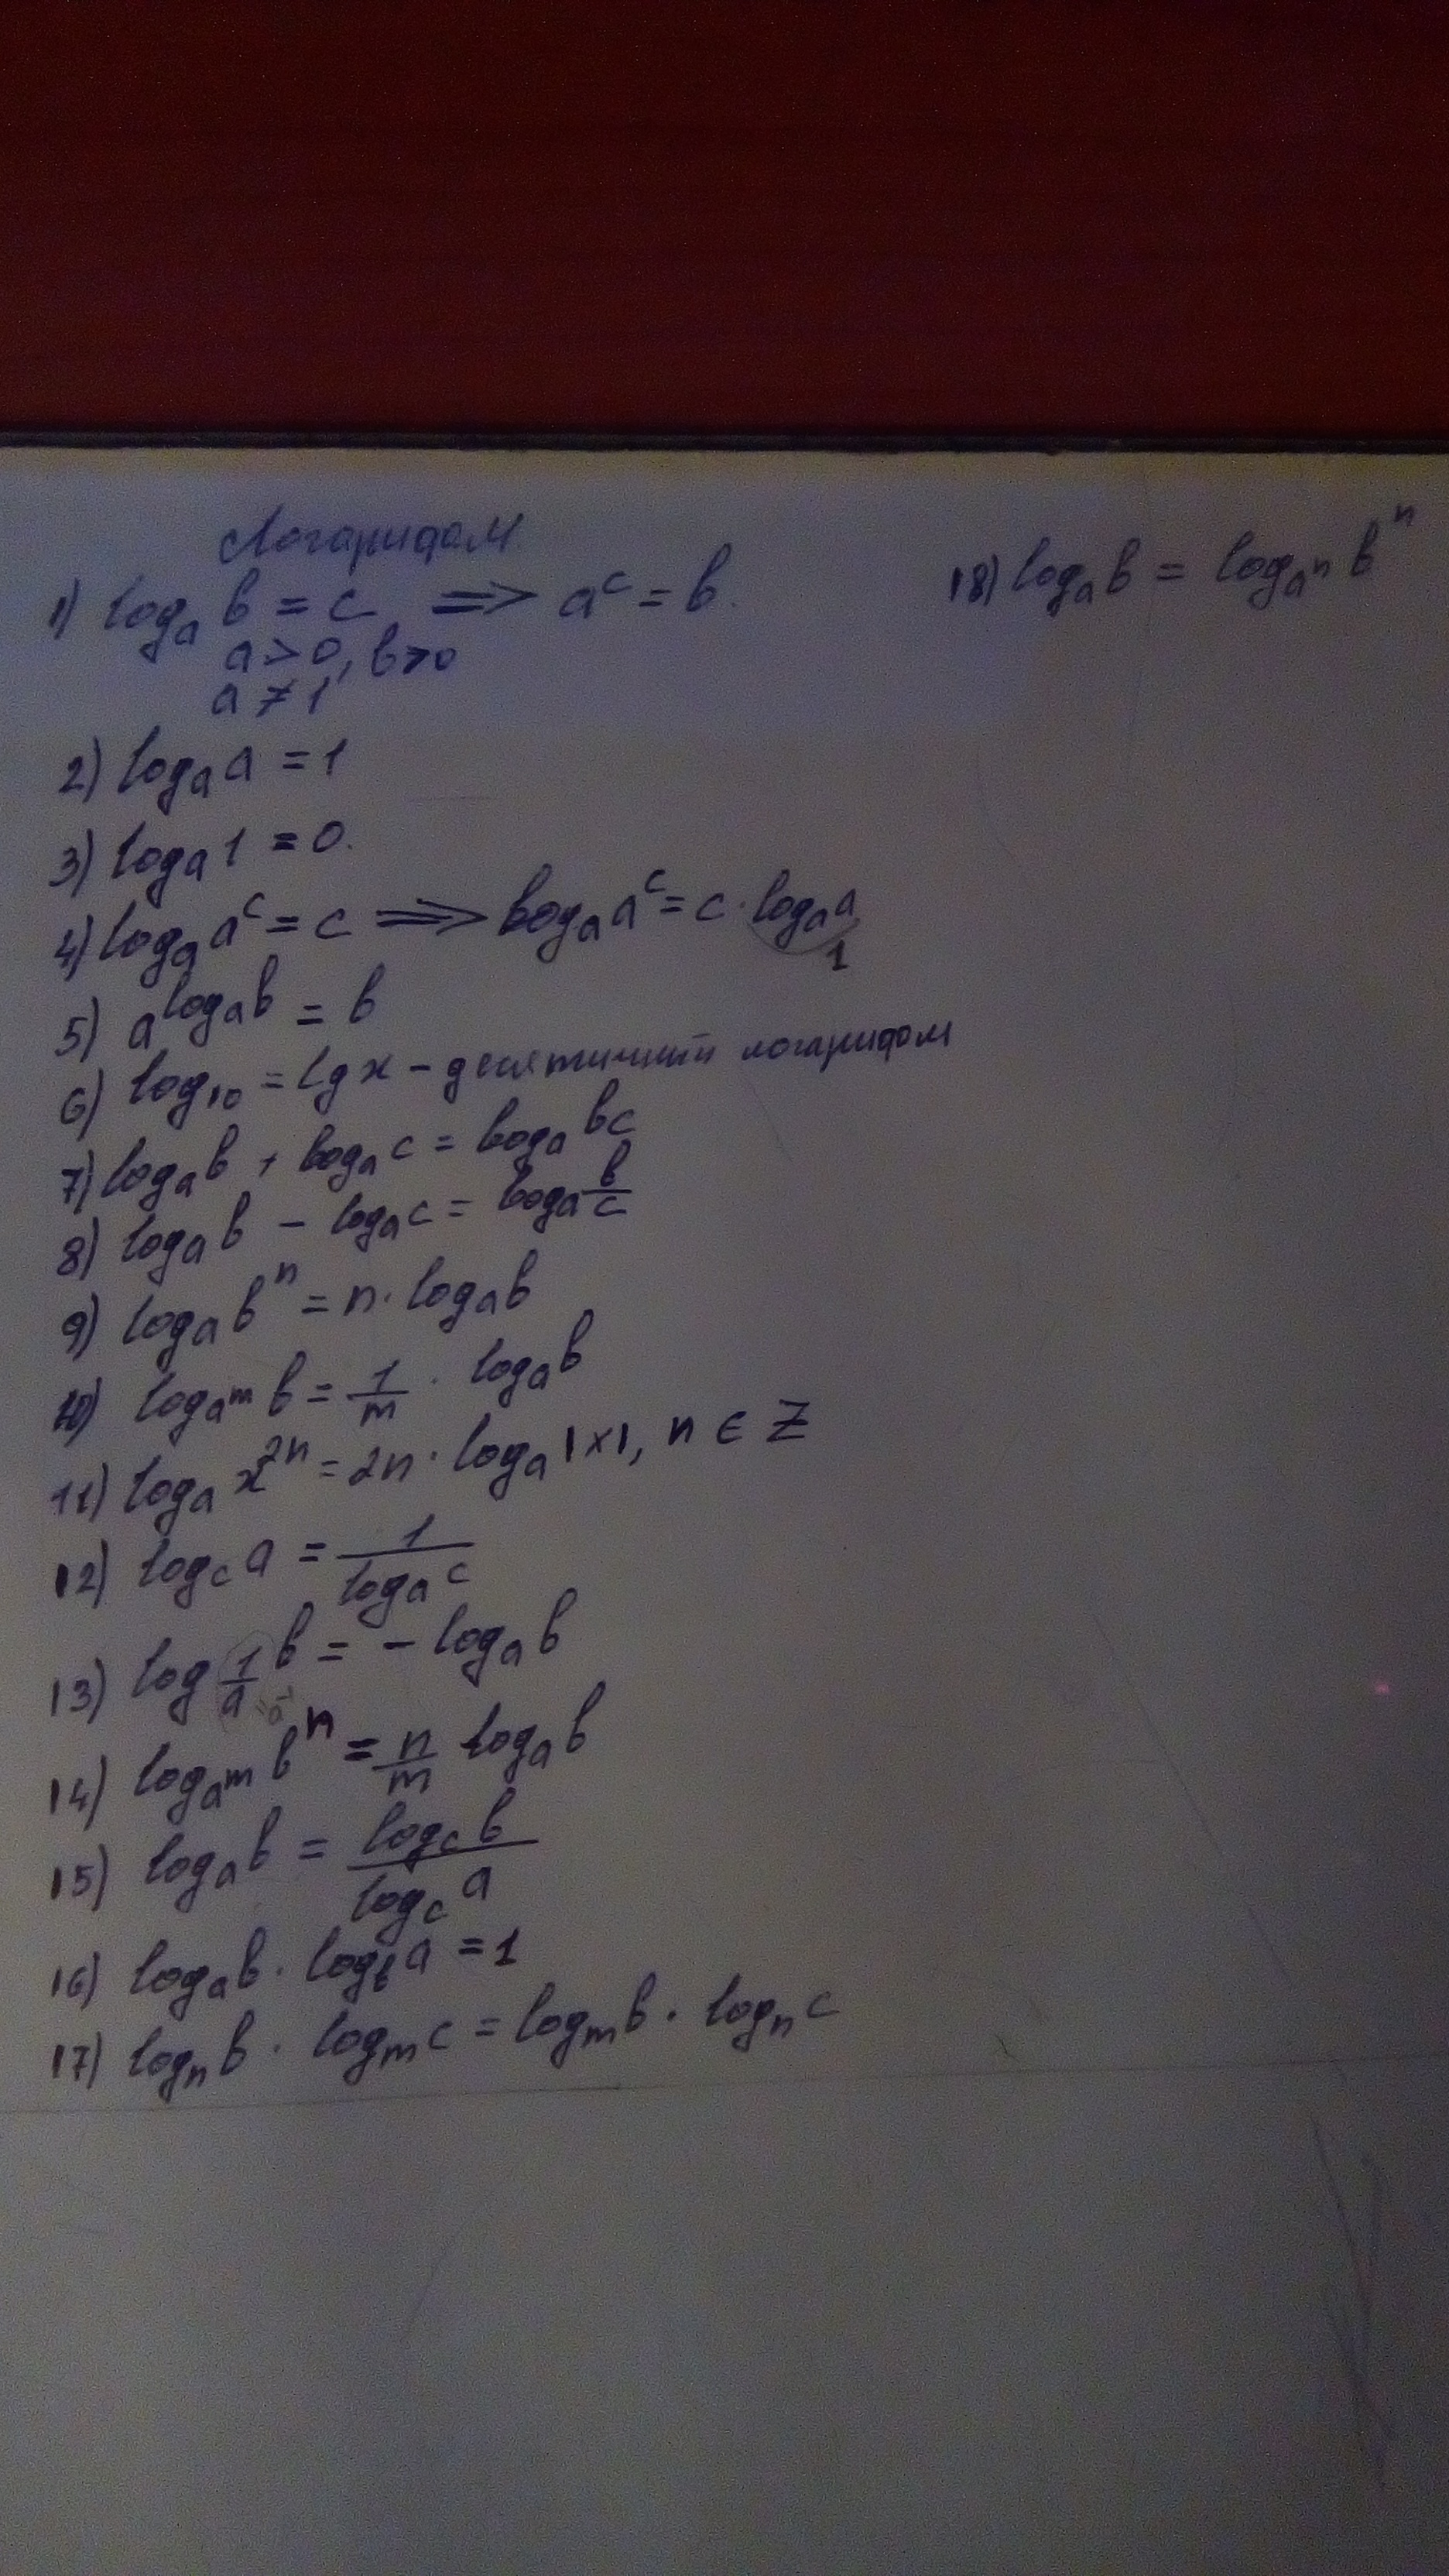 Логарифм
1) log_a b = c ⇒ a^c = b.
a > 0, b > 0
a ≠ 1
2) log_a a = 1
3) log_a 1 = 0.
4) log_a a^c = c ⇒ log_a a^c = c · log_a a
1
5) a^{log_a b} = b
6) log_10 = lg x – десятичный логарифм
7) log_a b + log_a c = log_a bc
8) log_a b – log_a c = log_a \frac{b}{c}
9) log_a b^n = n · log_a b
10) log_{a^m} b = \frac{1}{m} · log_a b
11) log_a x^{2n} = 2n · log_a |x|, n ∈ Z
12) log_c a = \frac{1}{log_a c}
13) log_{\frac{1}{a}} b = – log_a b
= a^{-1}
14) log_{a^m} b^n = \frac{n}{m} log_a b
15) log_a b = \frac{log_c b}{log_c a}
16) log_a b · log_b a = 1
17) log_n b · log_m c = log_m b · log_n c
18) log_a b = log_{a^n} b^n